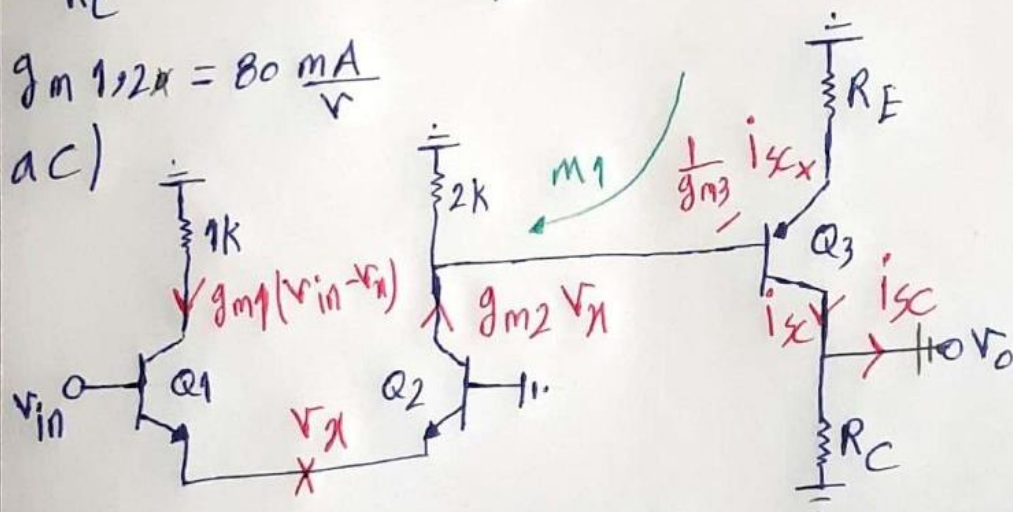 gm 1,2 = 80 mA/v
ac)
1K
2K
m1
1/gm3
isc x
RE
Q3
gm1(vin-vx)
gm2 vx
isc
isc
vo
vin
Q1
Q2
vx
x
RC